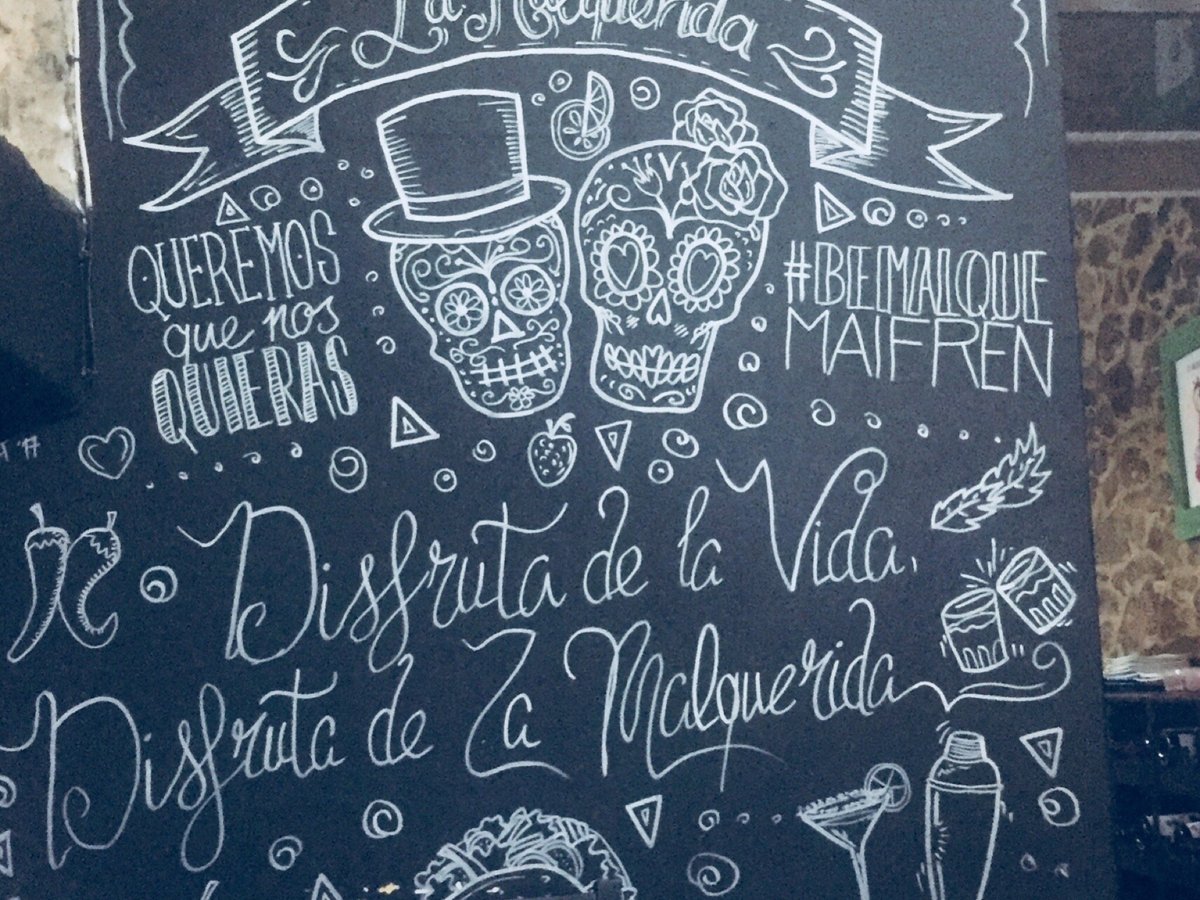 La Malquerida
QUEREMOS
que nos
QUIERAS
#BEMALQUE
MAIFREN
Disfruta de la Vida,
Disfruta de La Malquerida